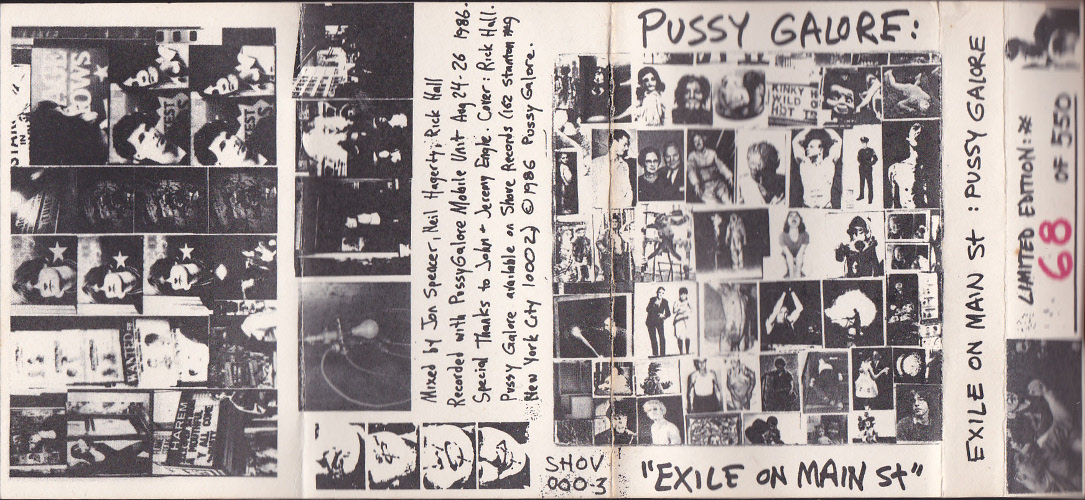 PUSSY GALORE:
KINKY
WILD
HOT
"EXILE ON MAIN St"
SHOV
000-3
EXILE ON MAN St : PUSSY GALORE
LIMITED EDITION: #
68 OF 550
Mixed by Jon Spencer, Neil Hagerty, Rick Hall
Recorded with PussyGalore Mobile Unit Aug 24-26 1986.
Special Thanks to John + Jeremy Engle. Cover: Rick Hall.
Pussy Galore available on Shove Records (162 Stanton #19
New York City 10002) © 1986 Pussy Galore.
WANTED
HAREM